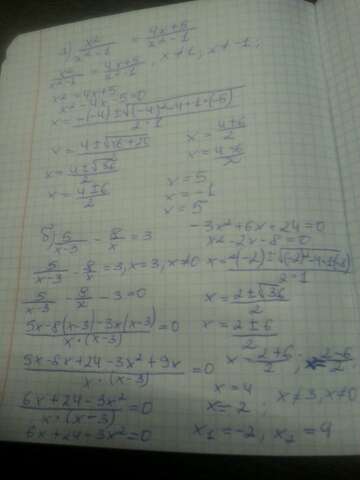 а) x²/(x²-1) = (4x+5)/(x²-1)
x²/(x²-1) = (4x+5)/(x²-1), x≠1, x≠-1;
x² = 4x+5
x² - 4x - 5 = 0
x = (-(-4)±√((-4)²-4·1·(-5)))/(2·1)
x = (4±√(16+20))/2
x = (4±√36)/2
x = (4±6)/2
x = (4+6)/2
x = (4-6)/2
x = 5
x = -1
x = 5
б) 5/(x-3) - 8/x = 3
5/(x-3) - 8/x = 3, x≠3, x≠0
5/(x-3) - 8/x - 3 = 0
(5x-8(x-3)-3x(x-3))/(x·(x-3)) = 0
(5x-8x+24-3x²+9x)/(x·(x-3)) = 0
(6x+24-3x²)/(x·(x-3)) = 0
6x+24-3x² = 0
-3x²+6x+24=0
x²-2x-8=0
x = (2±√36)/2
x = (2±6)/2
x = (2+6)/2 x = (2-6)/2
x = 4
x = -2 ; x≠3, x≠0
x₁ = -2, x₂ = 4